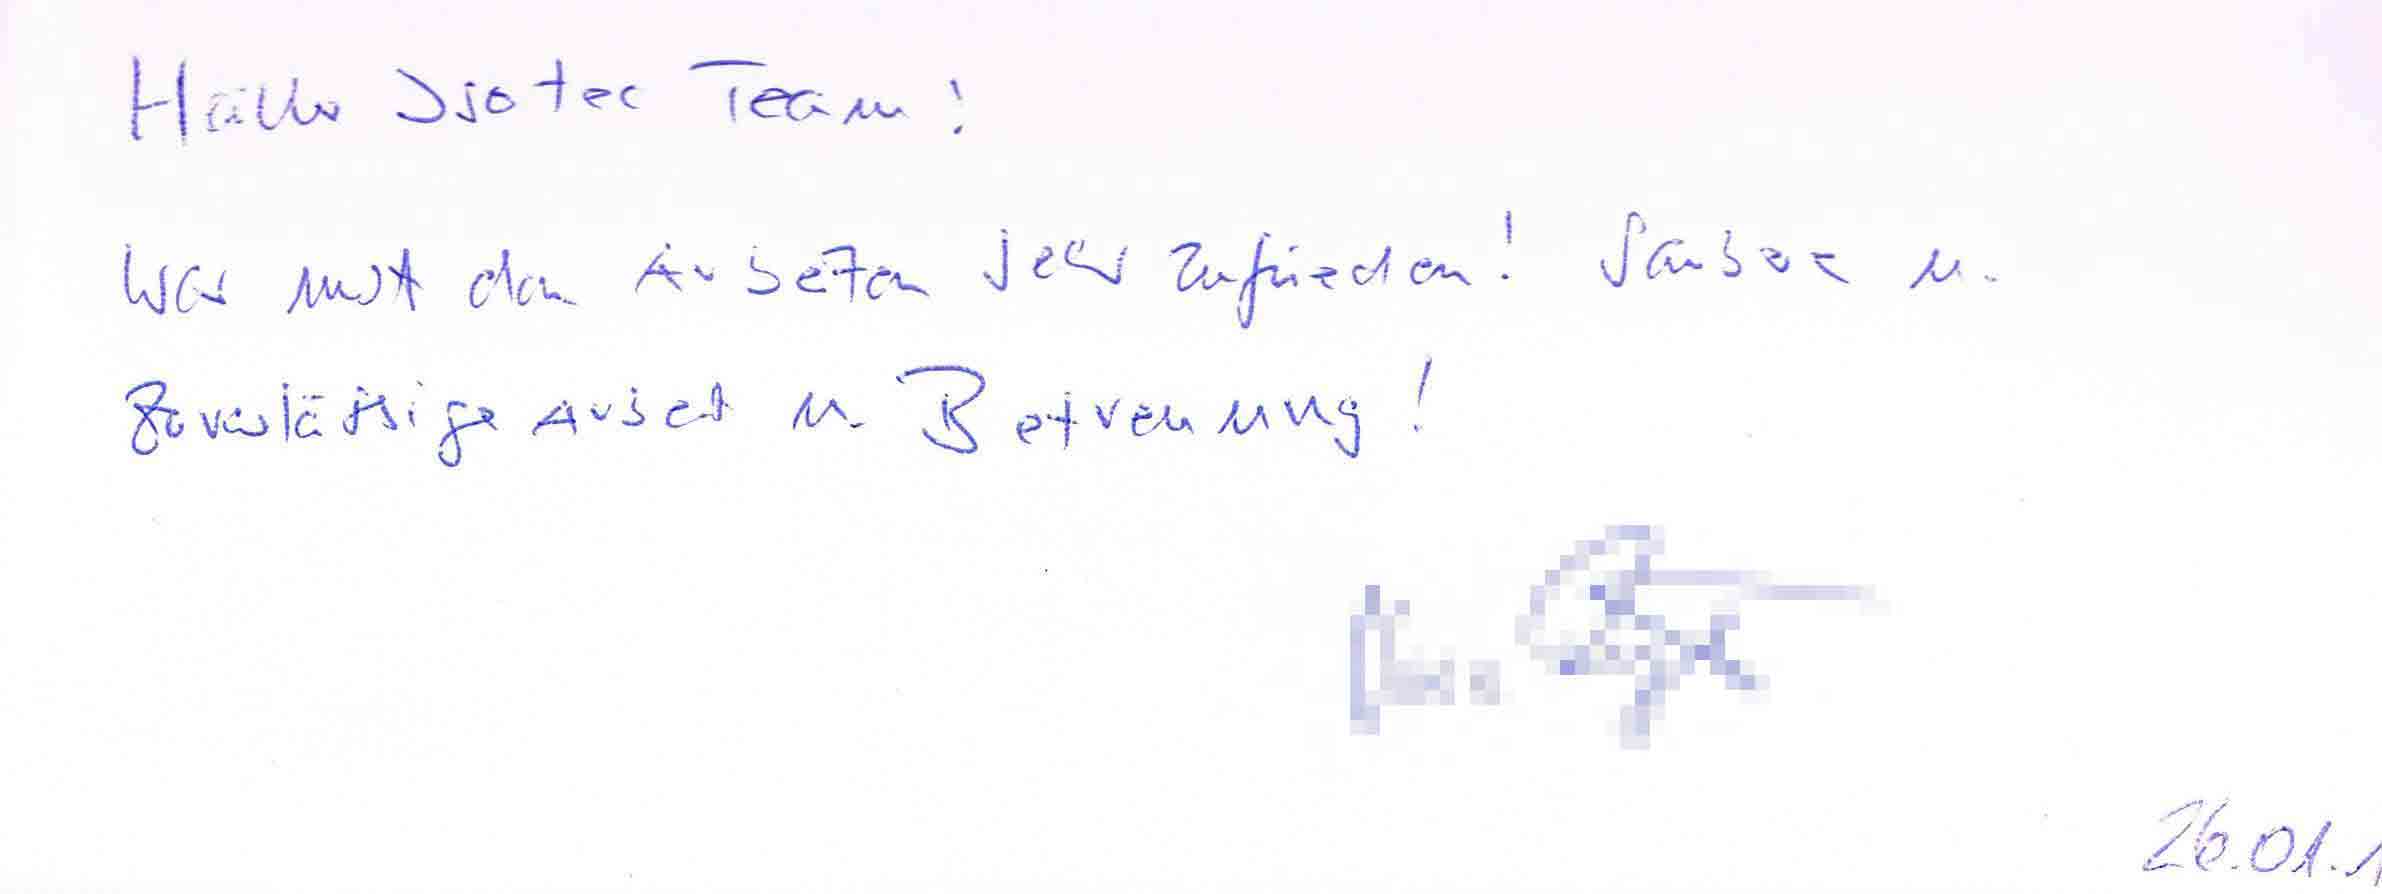 Hallo Isotec Team!
War mit den Arbeiten sehr zufrieden! Saubere u.
Zuverlässige Arbeit u. Betreuung!
26.01.1